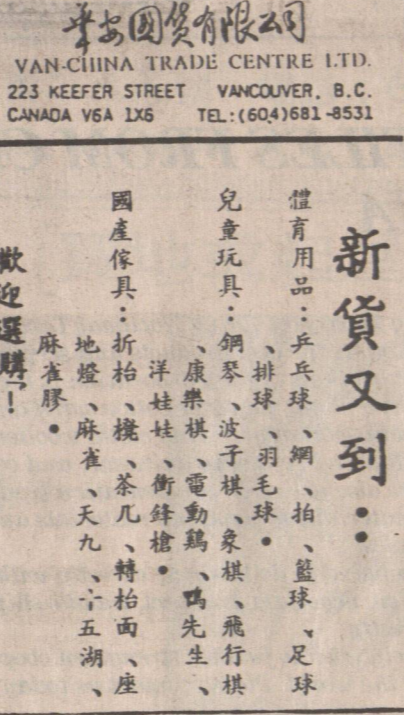 華安國貨有限公司
VAN-CHINA TRADE CENTRE LTD.
223 KEEFER STREET VANCOUVER, B.C.
CANADA V6A 1X6 TEL:(604)681-8531
新貨又到：
體育用品：乒乓球、網拍、籃球、足球
、排球、羽毛球。
兒童玩具：鋼琴、波子棋、象棋、飛行棋
、康樂棋、電動鷄、鴨先生、
洋娃娃、衝鋒槍。
國產傢具：折枱、櫈、茶几、轉枱面、座
地燈、麻雀、天九、十五湖、
麻雀膠。
歡迎選購！